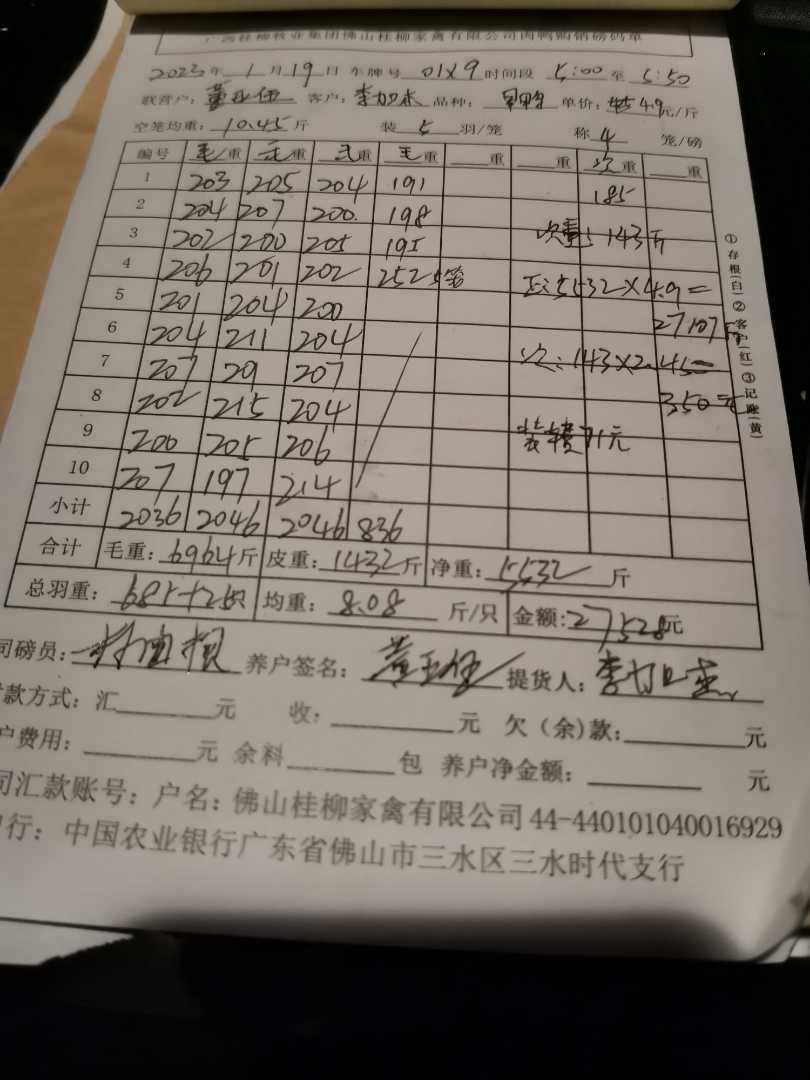 广西桂柳牧业集团佛山桂柳家禽有限公司肉鸭购销磅码单
2023年 1月19日 车牌号 01X9 时间段 5:00 至 5:50
联营户: 客户: 品种: 单价: 4.9元/斤
空笼均重: 10.45斤 装 5 羽/笼 称 4 笼/磅
编号 毛/重 毛重 重 毛重 重 重 次重 重
1 203 205 204 191 185
2 204 207 200 198
3 202 200 205 195 次重: 143斤
4 206 201 202 252 5笼 正: 5532×4.9=
5 201 204 200 27107元
6 204 211 204 次: 143×2.45=
7 207 207 350元
8 202 215 204
9 200 205 206 装车费71元
10 207 197 214
小计 2036 2046 2046 836
合计 毛重: 6964斤 皮重: 1432斤 净重: 5532斤
总羽重: 685+25只 均重: 8.08 斤/只 金额: 27528元
司磅员: 养户签名: 提货人:
款方式: 汇 元 收: 元 欠(余)款: 元
户费用: 元 余料 包 养户净金额: 元
司汇款账号: 户名: 佛山桂柳家禽有限公司 44-440101040016929
行: 中国农业银行广东省佛山市三水区三水时代支行
①存根(白)②客户(红)③记账(黄)